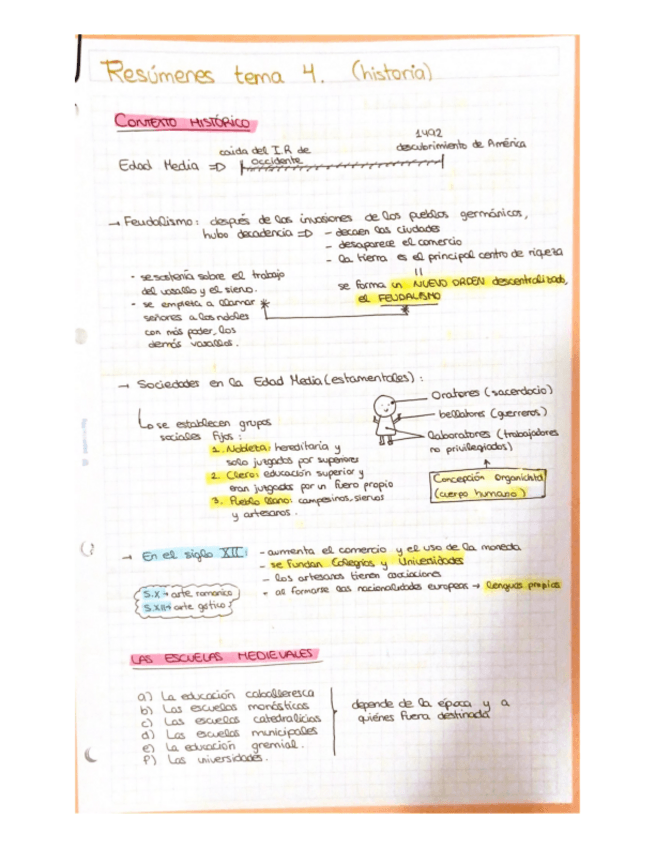 Resúmenes tema 4. (historia)
CONTEXTO HISTÓRICO
Edad Media ⇒ caída del I.R de occidente
1492 descubrimiento de América
→ Feudalismo: después de las invasiones de los pueblos germánicos,
hubo decadencia ⇒ - decaen las ciudades
- desaparece el comercio
- la tierra es el principal centro de riqueza
se forma un NUEVO ORDEN descentralizado,
el FEUDALISMO *
· se sostenía sobre el trabajo
del vasallo y el siervo.
· se empieza a llamar *
señores a los nobles
con más poder, los
demás vasallos.
→ Sociedades en la Edad Media (estamentales):
Lo se establecen grupos
sociales fijos:
1. Nobleza: hereditaria y
solo juzgados por superiores
2. Clero: educación superior y
eran juzgados por un fuero propio
3. Pueblo llano: campesinos, siervos
y artesanos.
Oratores (sacerdocio)
bellatores (guerreros)
laboratores (trabajadores
no privilegiados)
Concepción organicista
(cuerpo humano)
→ En el siglo XII: - aumenta el comercio y el uso de la moneda
- se fundan Colegios y Universidades
- los artesanos tienen asociaciones
- al formarse las nacionalidades europeas → lenguas propias
S.X → arte romanico
S.XII → arte gótico
LAS ESCUELAS MEDIEVALES
a) La educación caballeresca
b) Las escuelas monásticas
c) Las escuelas catedralicias
d) Las escuelas municipales
e) La educación gremial.
f) Las universidades.
depende de la época y a
quiénes fuera destinada